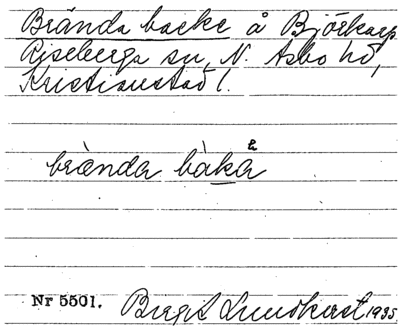 Brända backe å Björkarp
Riseberga sn, N. Åsbo hd,
Kristianstad l.
brànda bàka
Nr 5501. Birgit Lundkvist 1935